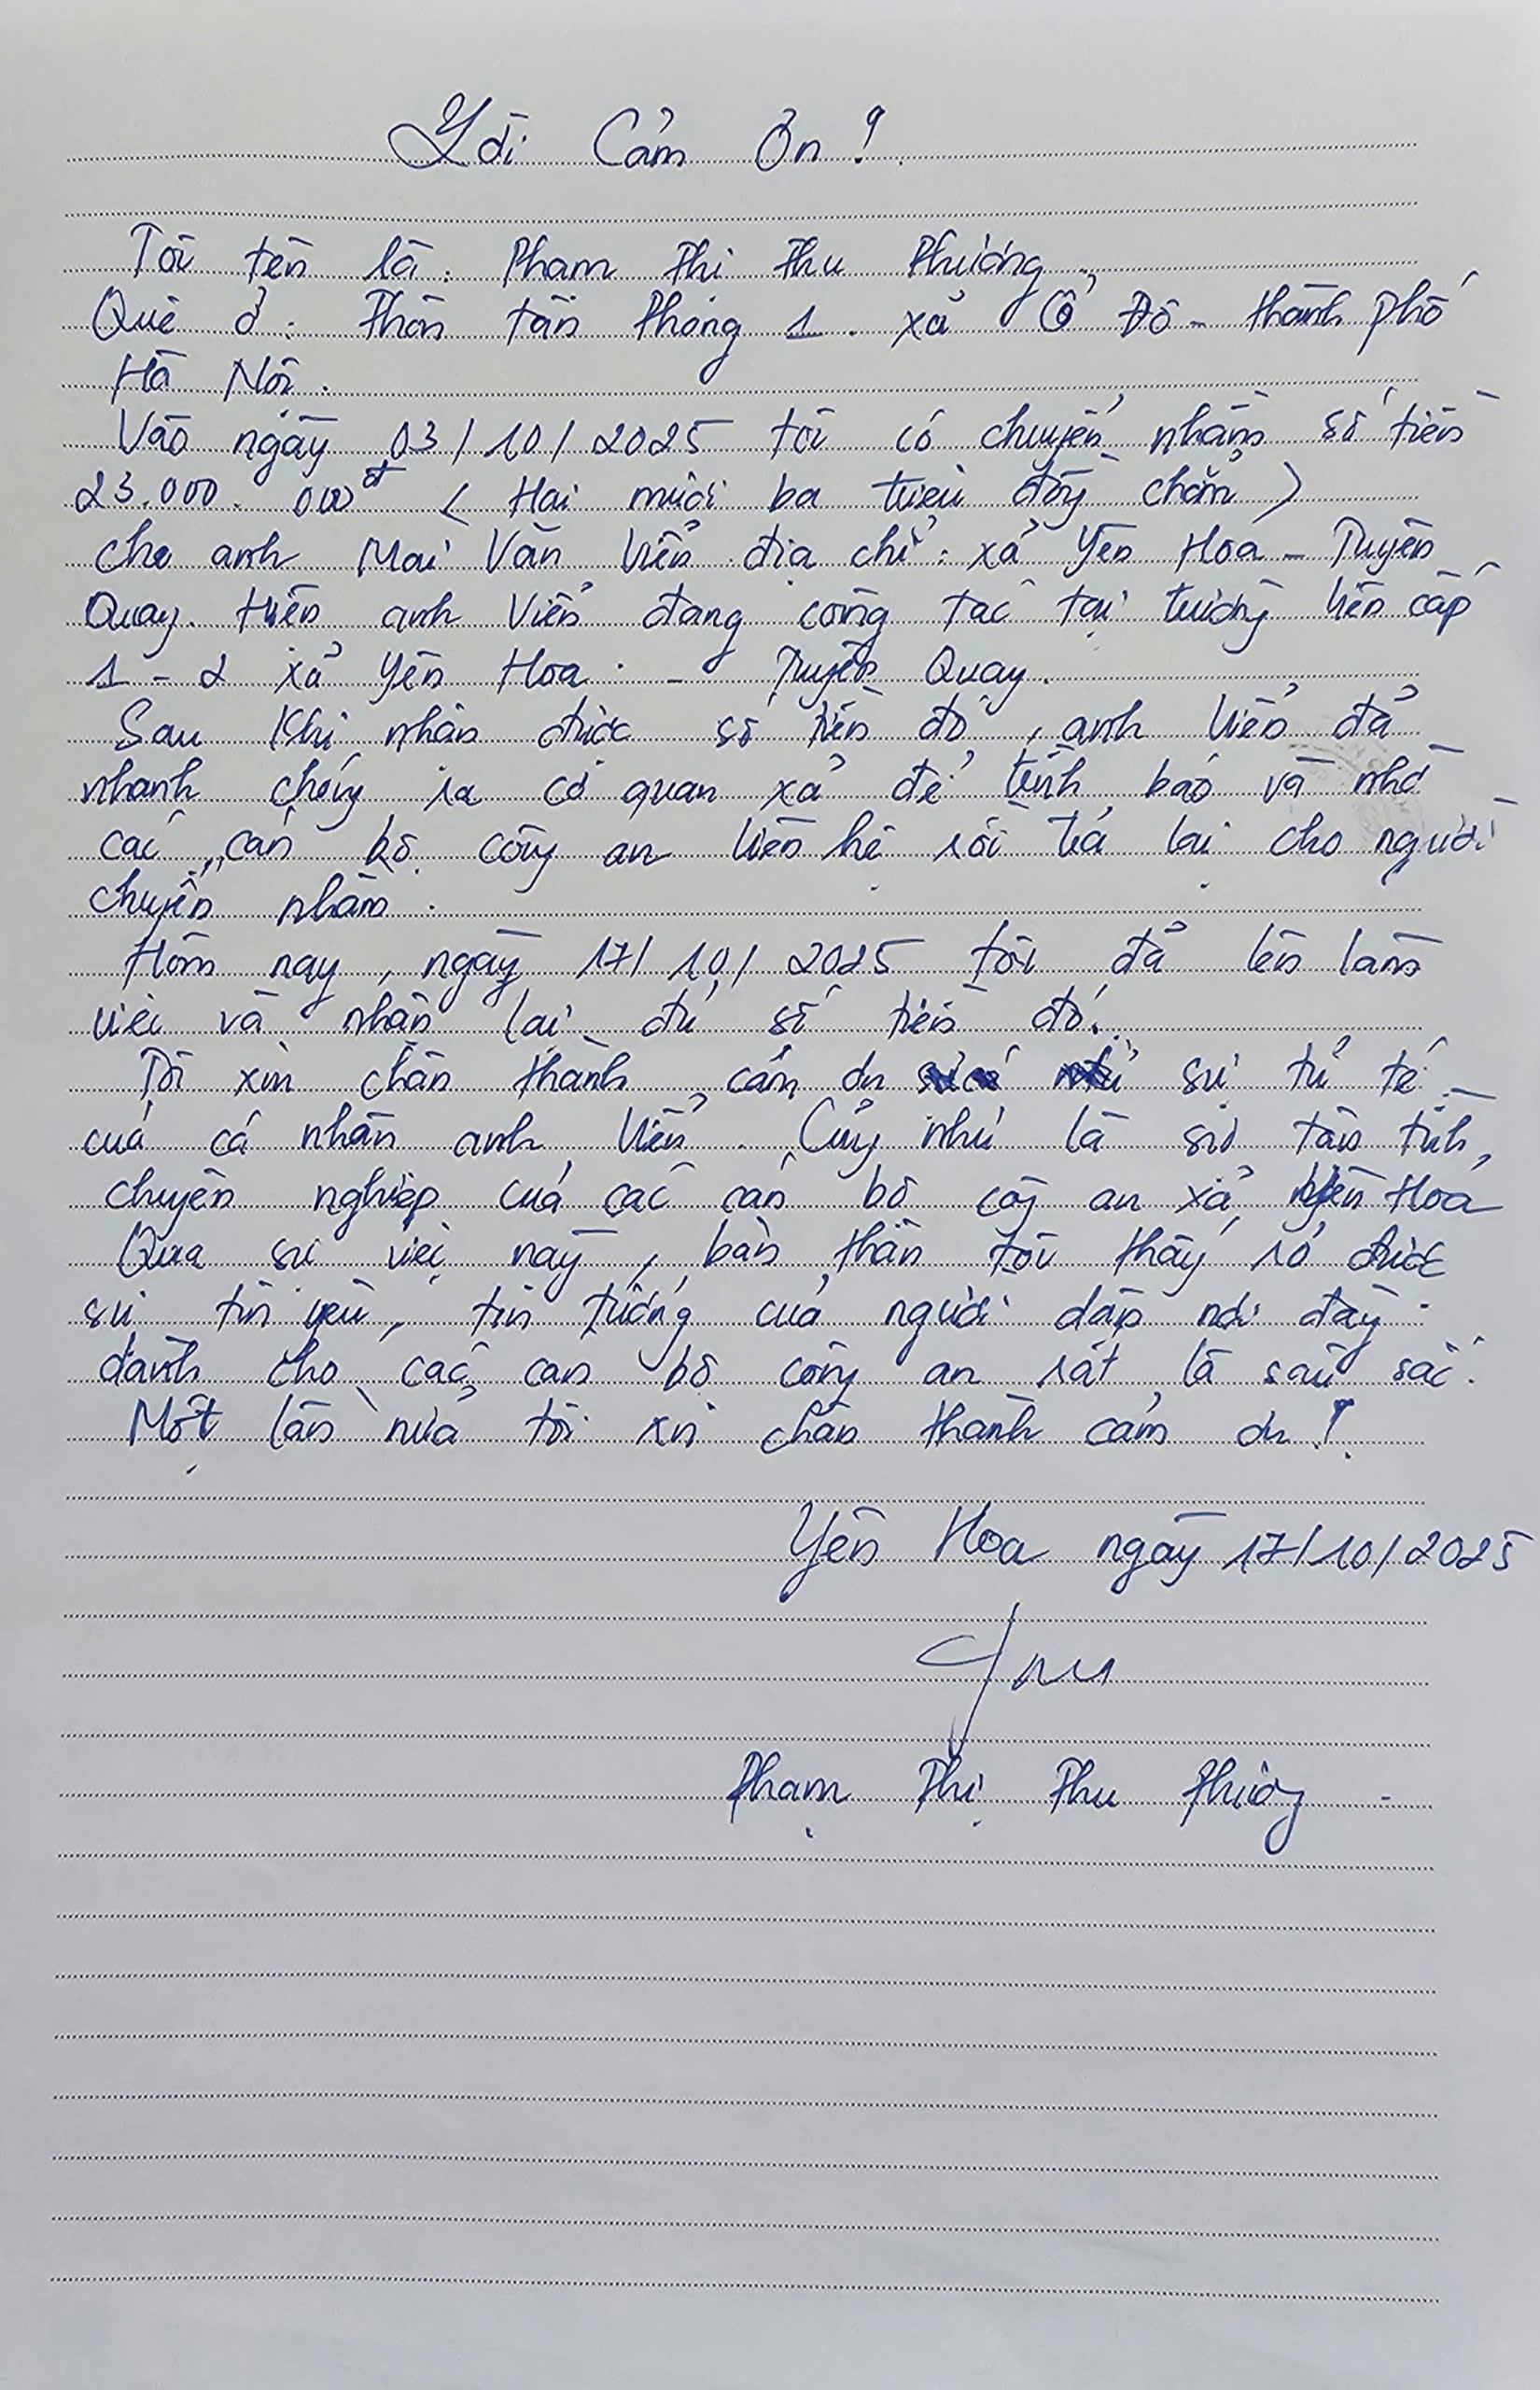 Lời Cảm Ơn!
Tôi tên là: Phạm Thị Thu Phương
Quê ở: Thôn tân Phong 1. xã Cổ Đô - thành phố
Hà Nội.
Vào ngày 03/10/2025 tôi có chuyển nhầm số tiền
23.000.000đ (Hai mươi ba triệu đồng chẵn)
cho anh Mai Văn Viễn địa chỉ: xã Yên Hoa - Tuyên
Quang. Hiện anh Viễn đang công tác tại trường liên cấp
1 - 2 xã Yên Hoa. - Tuyên Quang.
Sau khi nhận được số tiền đó, anh Viễn đã
nhanh chóng ra cơ quan xã để trình báo và nhờ
các cán bộ công an liên hệ rồi trả lại cho người
chuyển nhầm.
Hôm nay, ngày 17/10/2025 tôi đã lên làm
việc và nhận lại đủ số tiền đó.
Tôi xin chân thành cảm ơn sự tử tế
của cá nhân anh Viễn. Cũng như là sự tận tình,
chuyên nghiệp của các cán bộ công an xã Yên Hoa
Qua sự việc này, bản thân tôi thấy rõ được
sự tin yêu, tin tưởng của người dân nơi đây
dành cho các cán bộ công an rất là sâu sắc.
Một lần nữa tôi xin chân thành cảm ơn!
Yên Hoa ngày 17/10/2025
Phạm Thị Thu Phương